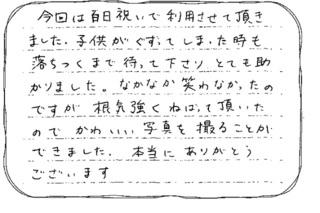 今回は百日祝いで利用させて頂き
ました。子供がぐずってしまった時も
落ちつくまで待って下さり とても助
かりました。なかなか笑わなかったの
ですが 根気強くねばって頂いた
ので かわいい写真を撮ることが
できました。本当にありがとう
ございます